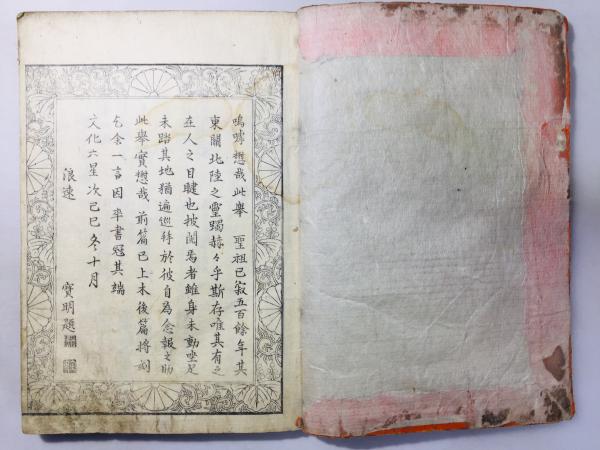 嗚呼懋哉此舉 聖祖已寂五百餘年其
東關北陸之靈躅赫々乎斯存唯其有之
在人之目睫也披閱焉者雖身未動坐足
未踏其地猶遍巡拜於彼自為念報之助
此舉實懋哉前篇已上木後篇將刻
乞余一言因卒書冠其端
文化六星次己巳冬十月
浪速 寶明題